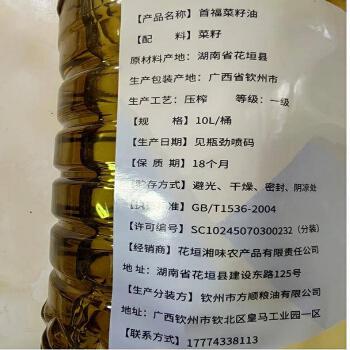 【产品名称】 首福菜籽油
【配　　料】 菜籽
原材料产地：湖南省花垣县
生产包装产地：广西省钦州市
生产工艺：压榨　等级：一级
【规　　格】 10L/桶
【生产日期】 见瓶劲喷码
【保 质 期】 18个月
【贮存方式】 避光、干燥、密封、阴凉处
GB/T1536-2004
【许可编号】 SC10245070300232（分装）
【经销商】 花垣湘味农产品有限责任公司
地址：湖南省花垣县建设东路125号
【生产分装方】 钦州市方顺粮油有限公司
地址：广西钦州市钦北区皇马工业园一区
【联系方式】 17774338113